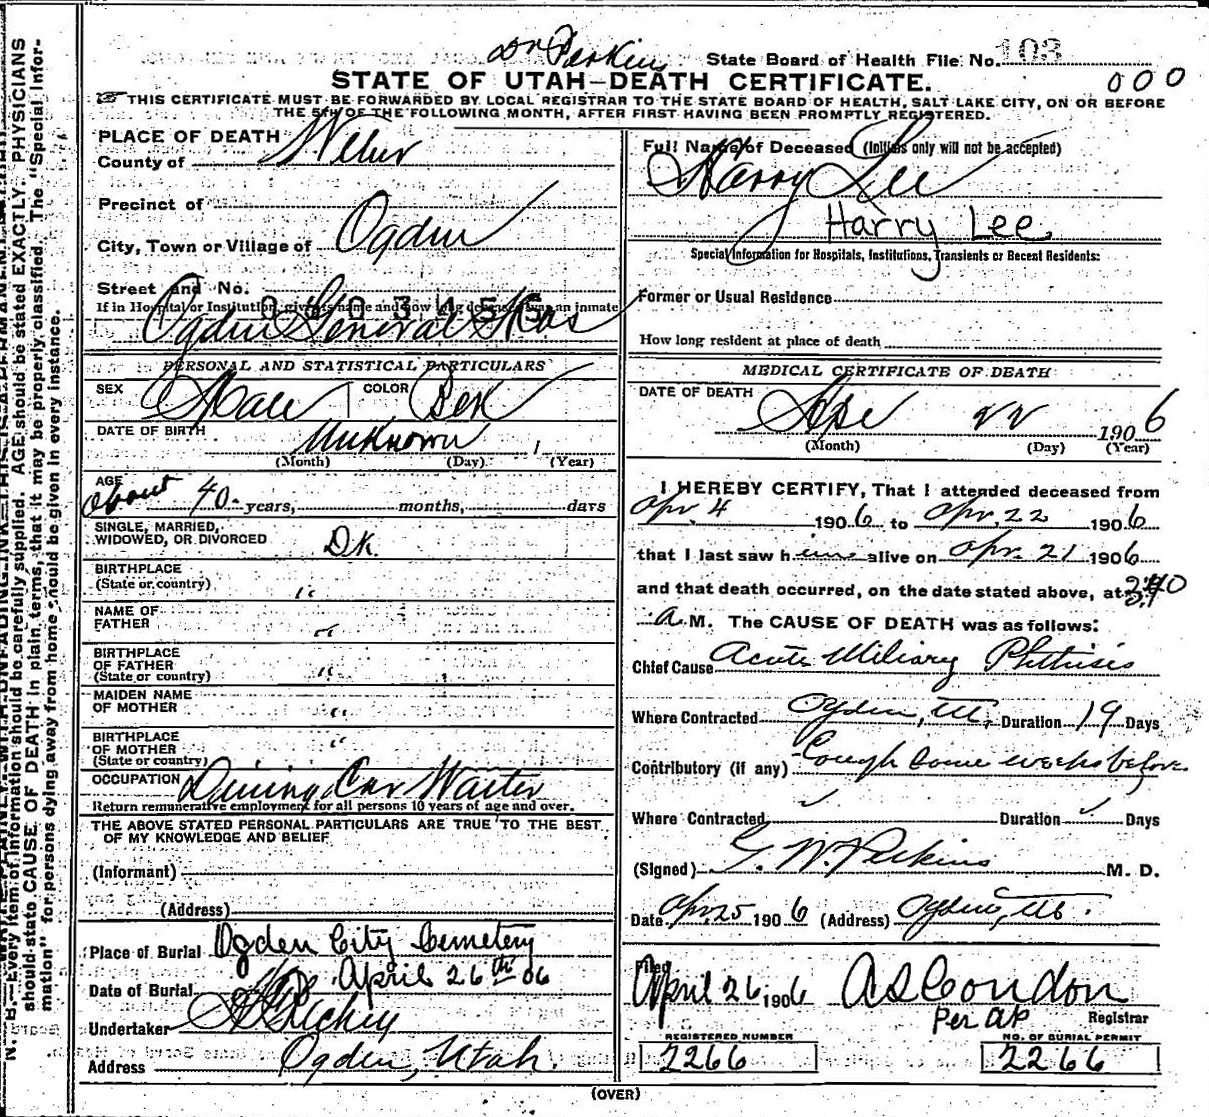 Dr Perkins State Board of Health File No. 103
STATE OF UTAH—DEATH CERTIFICATE. 000
THIS CERTIFICATE MUST BE FORWARDED BY LOCAL REGISTRAR TO THE STATE BOARD OF HEALTH, SALT LAKE CITY, ON OR BEFORE
THE 5TH OF THE FOLLOWING MONTH, AFTER FIRST HAVING BEEN PROMPTLY REGISTERED.
PLACE OF DEATH
County of Weber
Precinct of
City, Town or Village of Ogden
Street and No.
If in Hospital or Institution, give its name and how long deceased was an inmate
0403455
Ogden General Hos
PERSONAL AND STATISTICAL PARTICULARS
SEX Male COLOR
DATE OF BIRTH Unknown
(Month) (Day) (Year)
AGE
about 40 years, months, days
SINGLE, MARRIED,
WIDOWED, OR DIVORCED DK
BIRTHPLACE
(State or country) "
NAME OF
FATHER "
BIRTHPLACE
OF FATHER
(State or country) "
MAIDEN NAME
OF MOTHER "
BIRTHPLACE
OF MOTHER
(State or country) "
OCCUPATION Dining Car Waiter
Return remunerative employment for all persons 10 years of age and over.
THE ABOVE STATED PERSONAL PARTICULARS ARE TRUE TO THE BEST
OF MY KNOWLEDGE AND BELIEF
(Informant)
(Address)
Place of Burial Ogden City Cemetery
Date of Burial April 26th 06
Undertaker
Address Ogden, Utah.
Full Name of Deceased (Initials only will not be accepted)
Harry Lee
Harry Lee
Special Information for Hospitals, Institutions, Transients or Recent Residents:
Former or Usual Residence
How long resident at place of death
MEDICAL CERTIFICATE OF DEATH
DATE OF DEATH
22 1906
(Month) (Day) (Year)
I HEREBY CERTIFY, That I attended deceased from
Apr. 4 1906 to Apr. 22 1906
that I last saw him alive on Apr. 21 1906
and that death occurred, on the date stated above, at
a. M. The CAUSE OF DEATH was as follows:
Chief Cause Acute Miliary Phthisis
Where Contracted Ogden, Ut, Duration 19 Days
Contributory (if any) Cough some weeks before
Where Contracted ✓ Duration ✓ Days
(Signed) G. W. Perkins M. D.
Date Apr. 25 1906 (Address) Ogden, Ut.
Filed
April 26, 1906 A S Condon
Per AP Registrar
REGISTERED NUMBER
2266
NO. OF BURIAL PERMIT
2266
(OVER)
N. B.—Every item of information should be carefully supplied. AGE should be stated EXACTLY. PHYSICIANS
should state CAUSE OF DEATH in plain terms, that it may be properly classified. The "Special Infor-
mation" for persons dying away from home should be given in every instance.